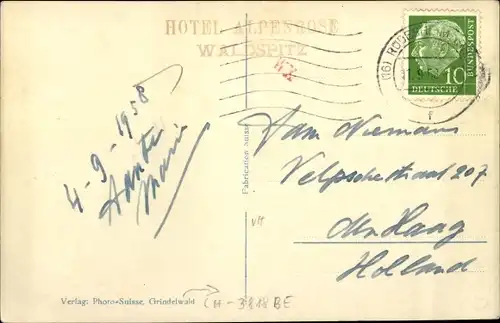 HOTEL ALPENROSE
WALDSPITZ
DEUTSCHE
10
BUNDESPOST
(16)
f
4-9-1958
Tante
Marie
Fabrication Suisse
Fam Niemans
207
den Haag
Holland
Verlag: Photo-Suisse, Grindelwald
H-3818 BE